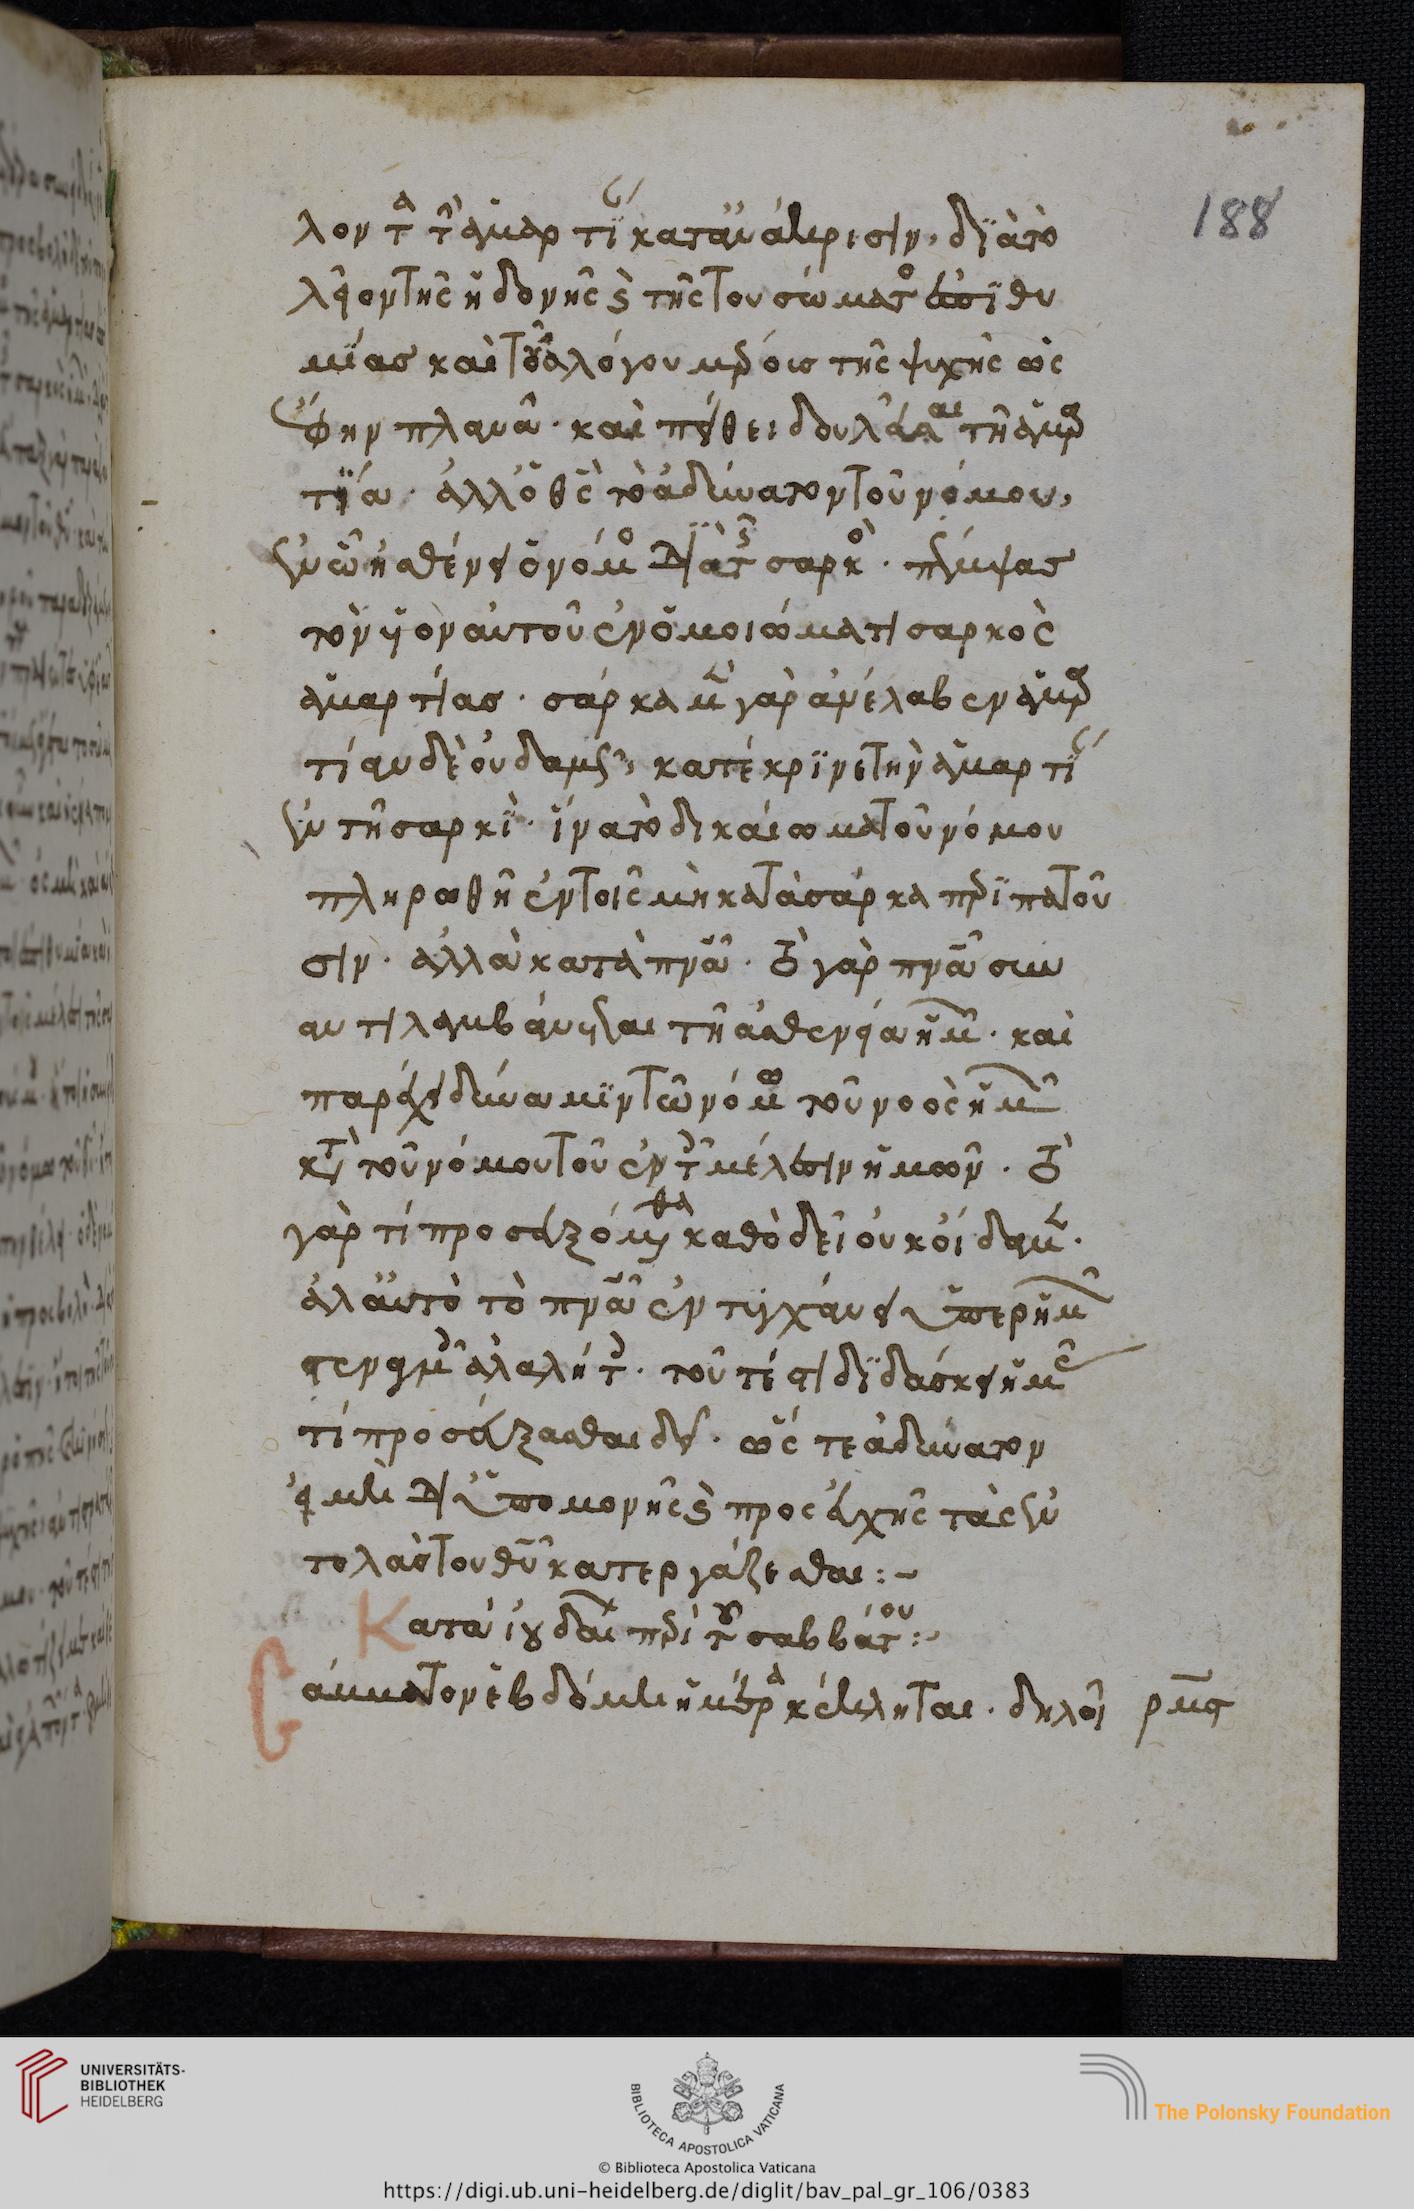 188
λον τὰ τῆς ἁμαρτίας κατὰ ἀνάκρισιν, διὰ τὸ
τῆς ἡδονῆς καὶ τῆς τοῦ σώματος ἐπιθυ
μίας καὶ τοῦ ἀλόγου μέρους τῆς ψυχῆς ὡς
ἔφην πλανᾷ · καὶ πείθει δουλεύσαι τῇ ἁμαρ
τίᾳ · ἀλλ' ὁ θς τὸ ἀδύνατον τοῦ νόμου,
ἐν ᾧ ἠσθένει ὁ νόμος διὰ τῆς σαρκὸς · πέμψας
τὸν υἱὸν αὐτοῦ ἐν ὁμοιώματι σαρκὸς
ἁμαρτίας · σάρκα μὲν γὰρ ἀνέλαβεν ἁμαρ
τίαν δὲ οὐδαμῶς, κατέκρινε τὴν ἁμαρτίαν
ἐν τῇ σαρκὶ · ἵνα τὸ δικαίωμα τοῦ νόμου
πληρωθῇ ἐν τοῖς μὴ κατὰ σάρκα περιπατοῦ
σιν · ἀλλὰ κατὰ πνα · τὸ γὰρ πνα συν
αντιλαμβάνεται τῇ ἀσθενείᾳ ἡμῶν · καὶ
παρέχει δύναμιν τῷ νόμῳ τοῦ νοὸς ἡμῶν
κατὰ τοῦ νόμου τοῦ ἐν τοῖς μέλεσιν ἡμῶν · τὸ
γὰρ τί προσευξόμεθα καθὸ δεῖ οὐκ οἴδαμεν ·
ἀλλ' αὐτὸ τὸ πνα ἐντυγχάνει ὑπὲρ ἡμῶν
στεναγμοῖς ἀλαλήτοις · τουτέστι διδάσκει ἡμᾶς
τί προσεύξασθαι δεῖ · ὥστε ἀδύνατον
εἰ μὴ δι' ὑπομονῆς καὶ προσευχῆς τὰς ἐν
τολὰς τοῦ θυ κατεργάζεσθαι :~
Κατὰ ἰουδαί περὶ τοῦ σαββάτου :~
Σάμματον ἑβδόμη ἡμέρα κέκληται · δηλοῖ ρμς
UNIVERSITÄTS-
BIBLIOTHEK
HEIDELBERG
BIBLIOTECA APOSTOLICA VATICANA
The Polonsky Foundation
© Biblioteca Apostolica Vaticana
https://digi.ub.uni-heidelberg.de/diglit/bav_pal_gr_106/0383